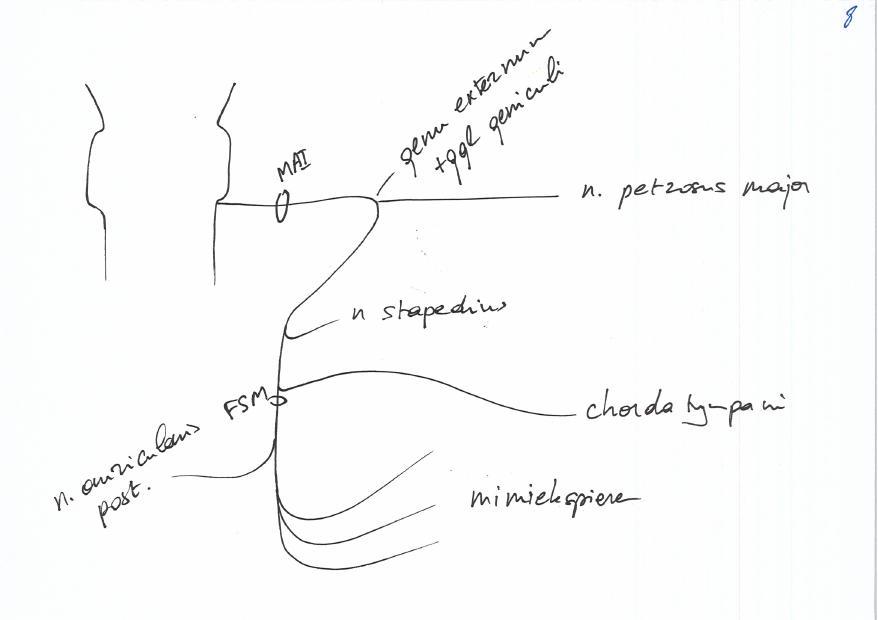 8
genu externum
+ggl geniculi
MAI
n. petrosus major
n stapedius
FSM
chorda tympani
n. auricularis
post.
mimiekspieren